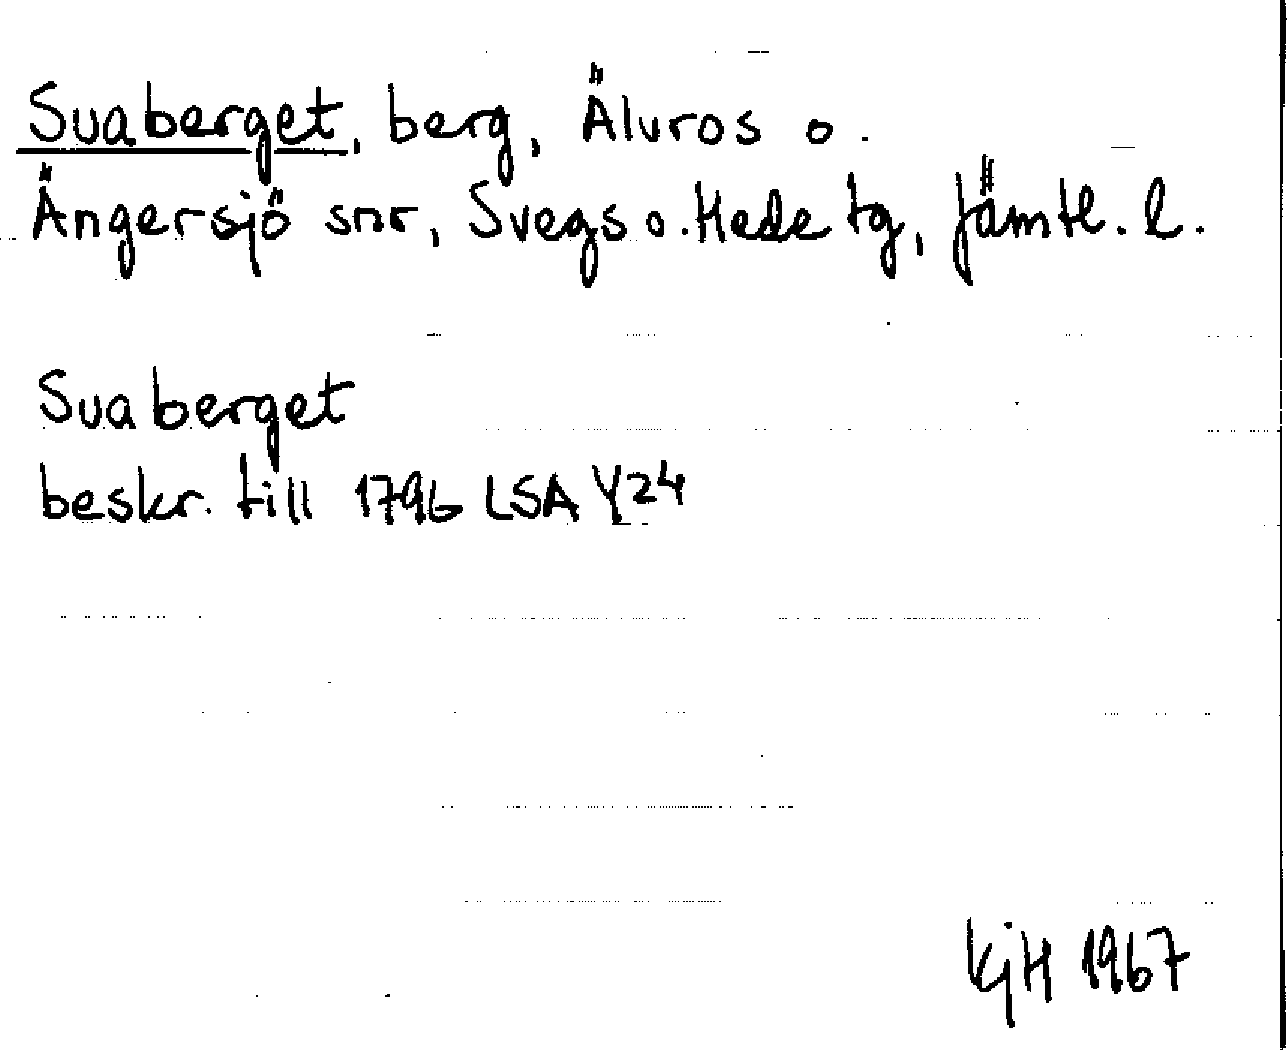 Svaberget, berg, Älvros o.
Ängersjö snr, Svegs o. Hede tg, Jämtl. l.
Svaberget
beskr. till 1796 LSA Y24
KjH 1967